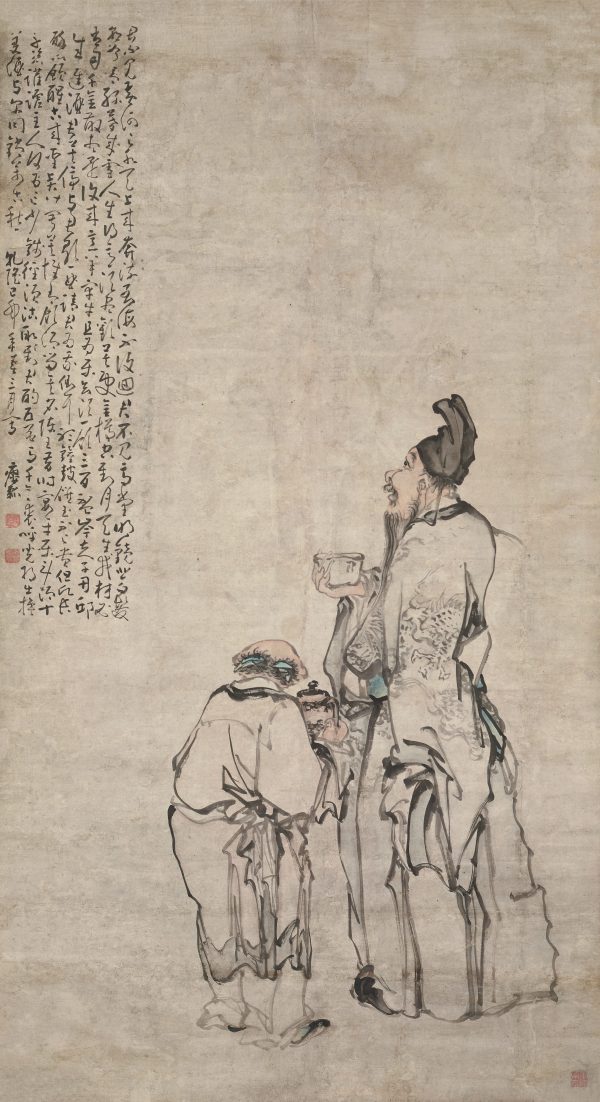 君不見黃河之水天上來奔流至海不復回君不見高堂明鏡悲白髮
朝如青絲暮成雪人生得意須盡歡莫使金樽空對月天生我材必
有用千金散盡還復來烹羊宰牛且為樂會須一飲三百杯岑夫子丹邱
生進酒君莫停與君歌一曲請君為我側耳聽鐘鼓饌玉不足貴但願長
醉不願醒古來聖賢皆寂寞惟有飲者留其名陳王昔時宴平樂斗酒十
千恣讙謔主人何為言少錢徑須沽取對君酌五花馬千金裘呼兒將出換
美酒與爾同銷萬古愁 乾隆己卯年春三月寫 癭瓢